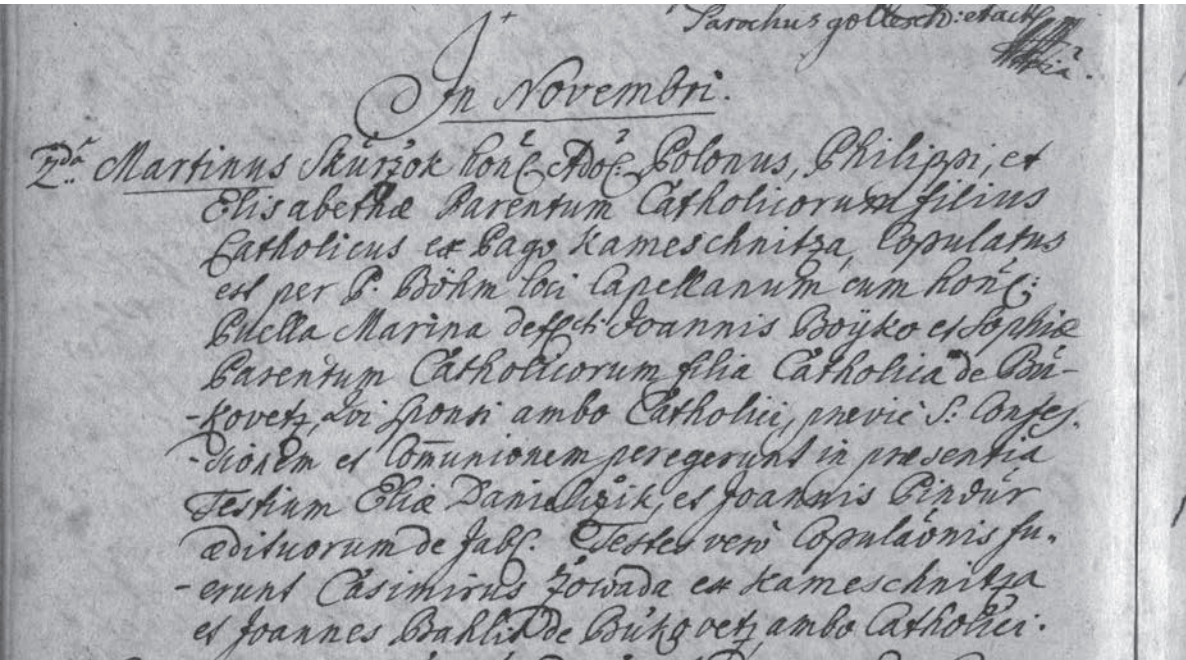 Parochus
In Novembri.
2da Martinus Skürzok hon: Ado: Polonus, Philippi, et
Elisabethæ Parentum Catholicorum filius
Catholicus ex Pago Kameschnitza, Copulatus
est per P. Böhm loci Capellanum cum hon:
Puella Marina deffcti Joannis Boÿko et Sophiæ
Parentum Catholicorum filia Catholica de Bü-
-kovetz, qvi Sponsi ambo Catholici, prævie S: Confes.
-sionem et Com̄unionem peregerunt in præsentia
Testium Eliæ et Joannis Pindür
ædituorum de Jabl. Testes verò Copulaōnis fu-
-erunt Casimirus Zowada ex Kameschnitza
et Joannes de Bükovetz, ambo Catholici.